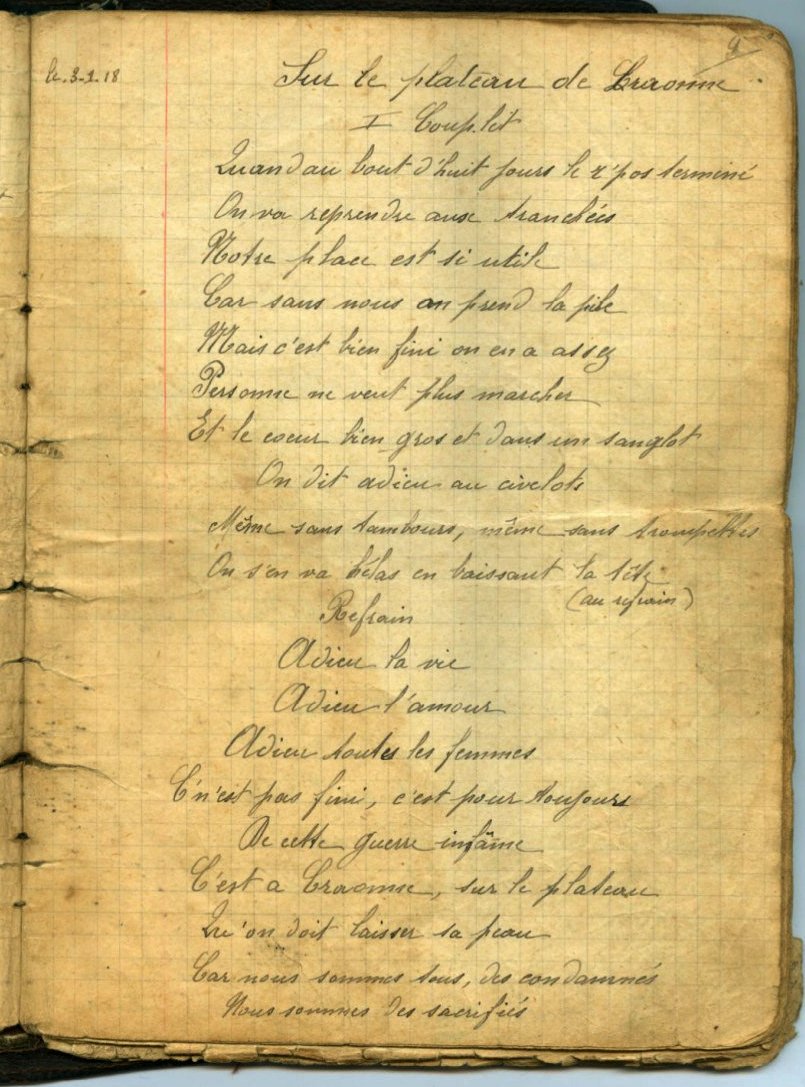 9
le 3-1.18
Sur le plateau de Craonne
I Couplet
Quand au bout d'huit jours le r'pos terminé
On va reprendre aux tranchées
Notre place est si utile
Car sans nous on prend la pile
Mais c'est bien fini on en a assez
Personne ne veut plus marcher
Et le coeur bien gros et dans un sanglot
On dit adieu au civelots
Même sans tambours, même sans trompettes
On s'en va hélas en baissant la tête
(au refrain)
Refrain
Adieu la vie
Adieu l'amour
Adieu toutes les femmes
C'n'est pas fini, c'est pour toujours
De cette guerre infâme
C'est a Craonne, sur le plateau
Qu'on doit laisser sa peau
Car nous sommes tous, des condamnés
Nous sommes des sacrifiés